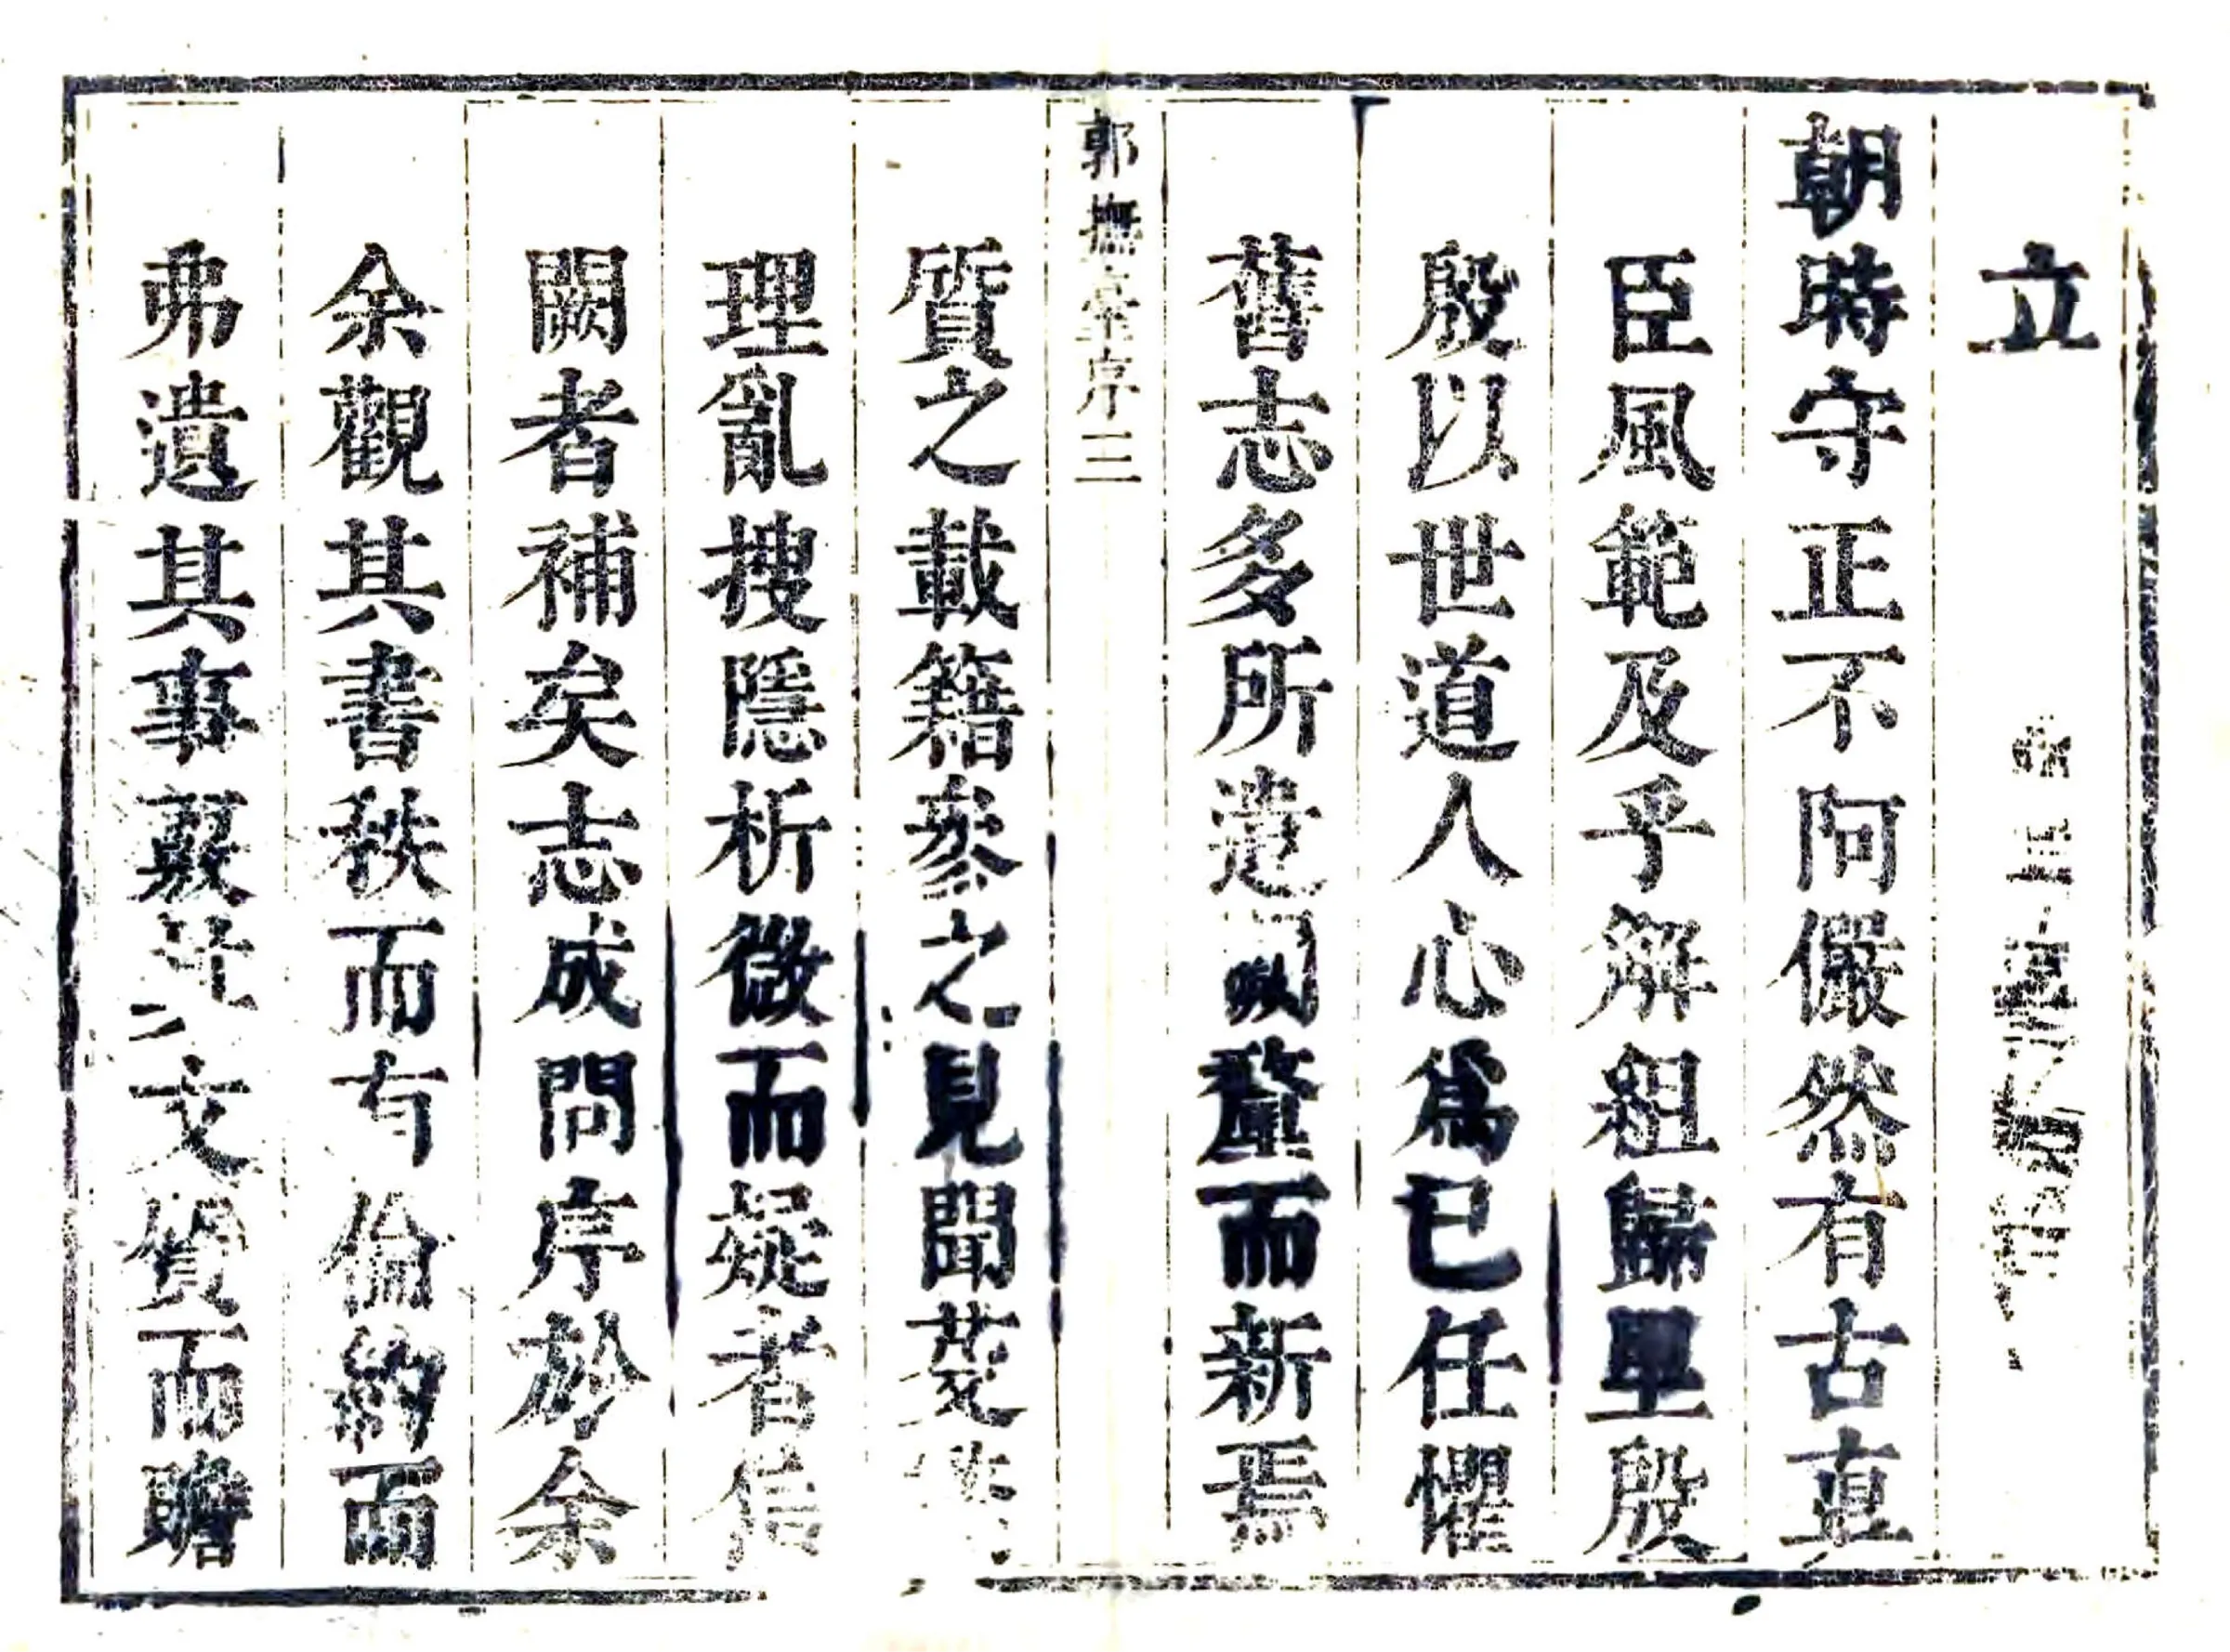 立
朝時守正不阿儼然有古直
臣風範及乎解組歸里殷
殷以世道人心為已任懼
舊志多所遺闕釐而新焉
郭撫臺序三
質之載籍參之見聞芟
理亂搜隱析微而疑者信
闕者補矣志成問序於余
余觀其書秩而有倫約而
弗遺其事覈其文質而贍